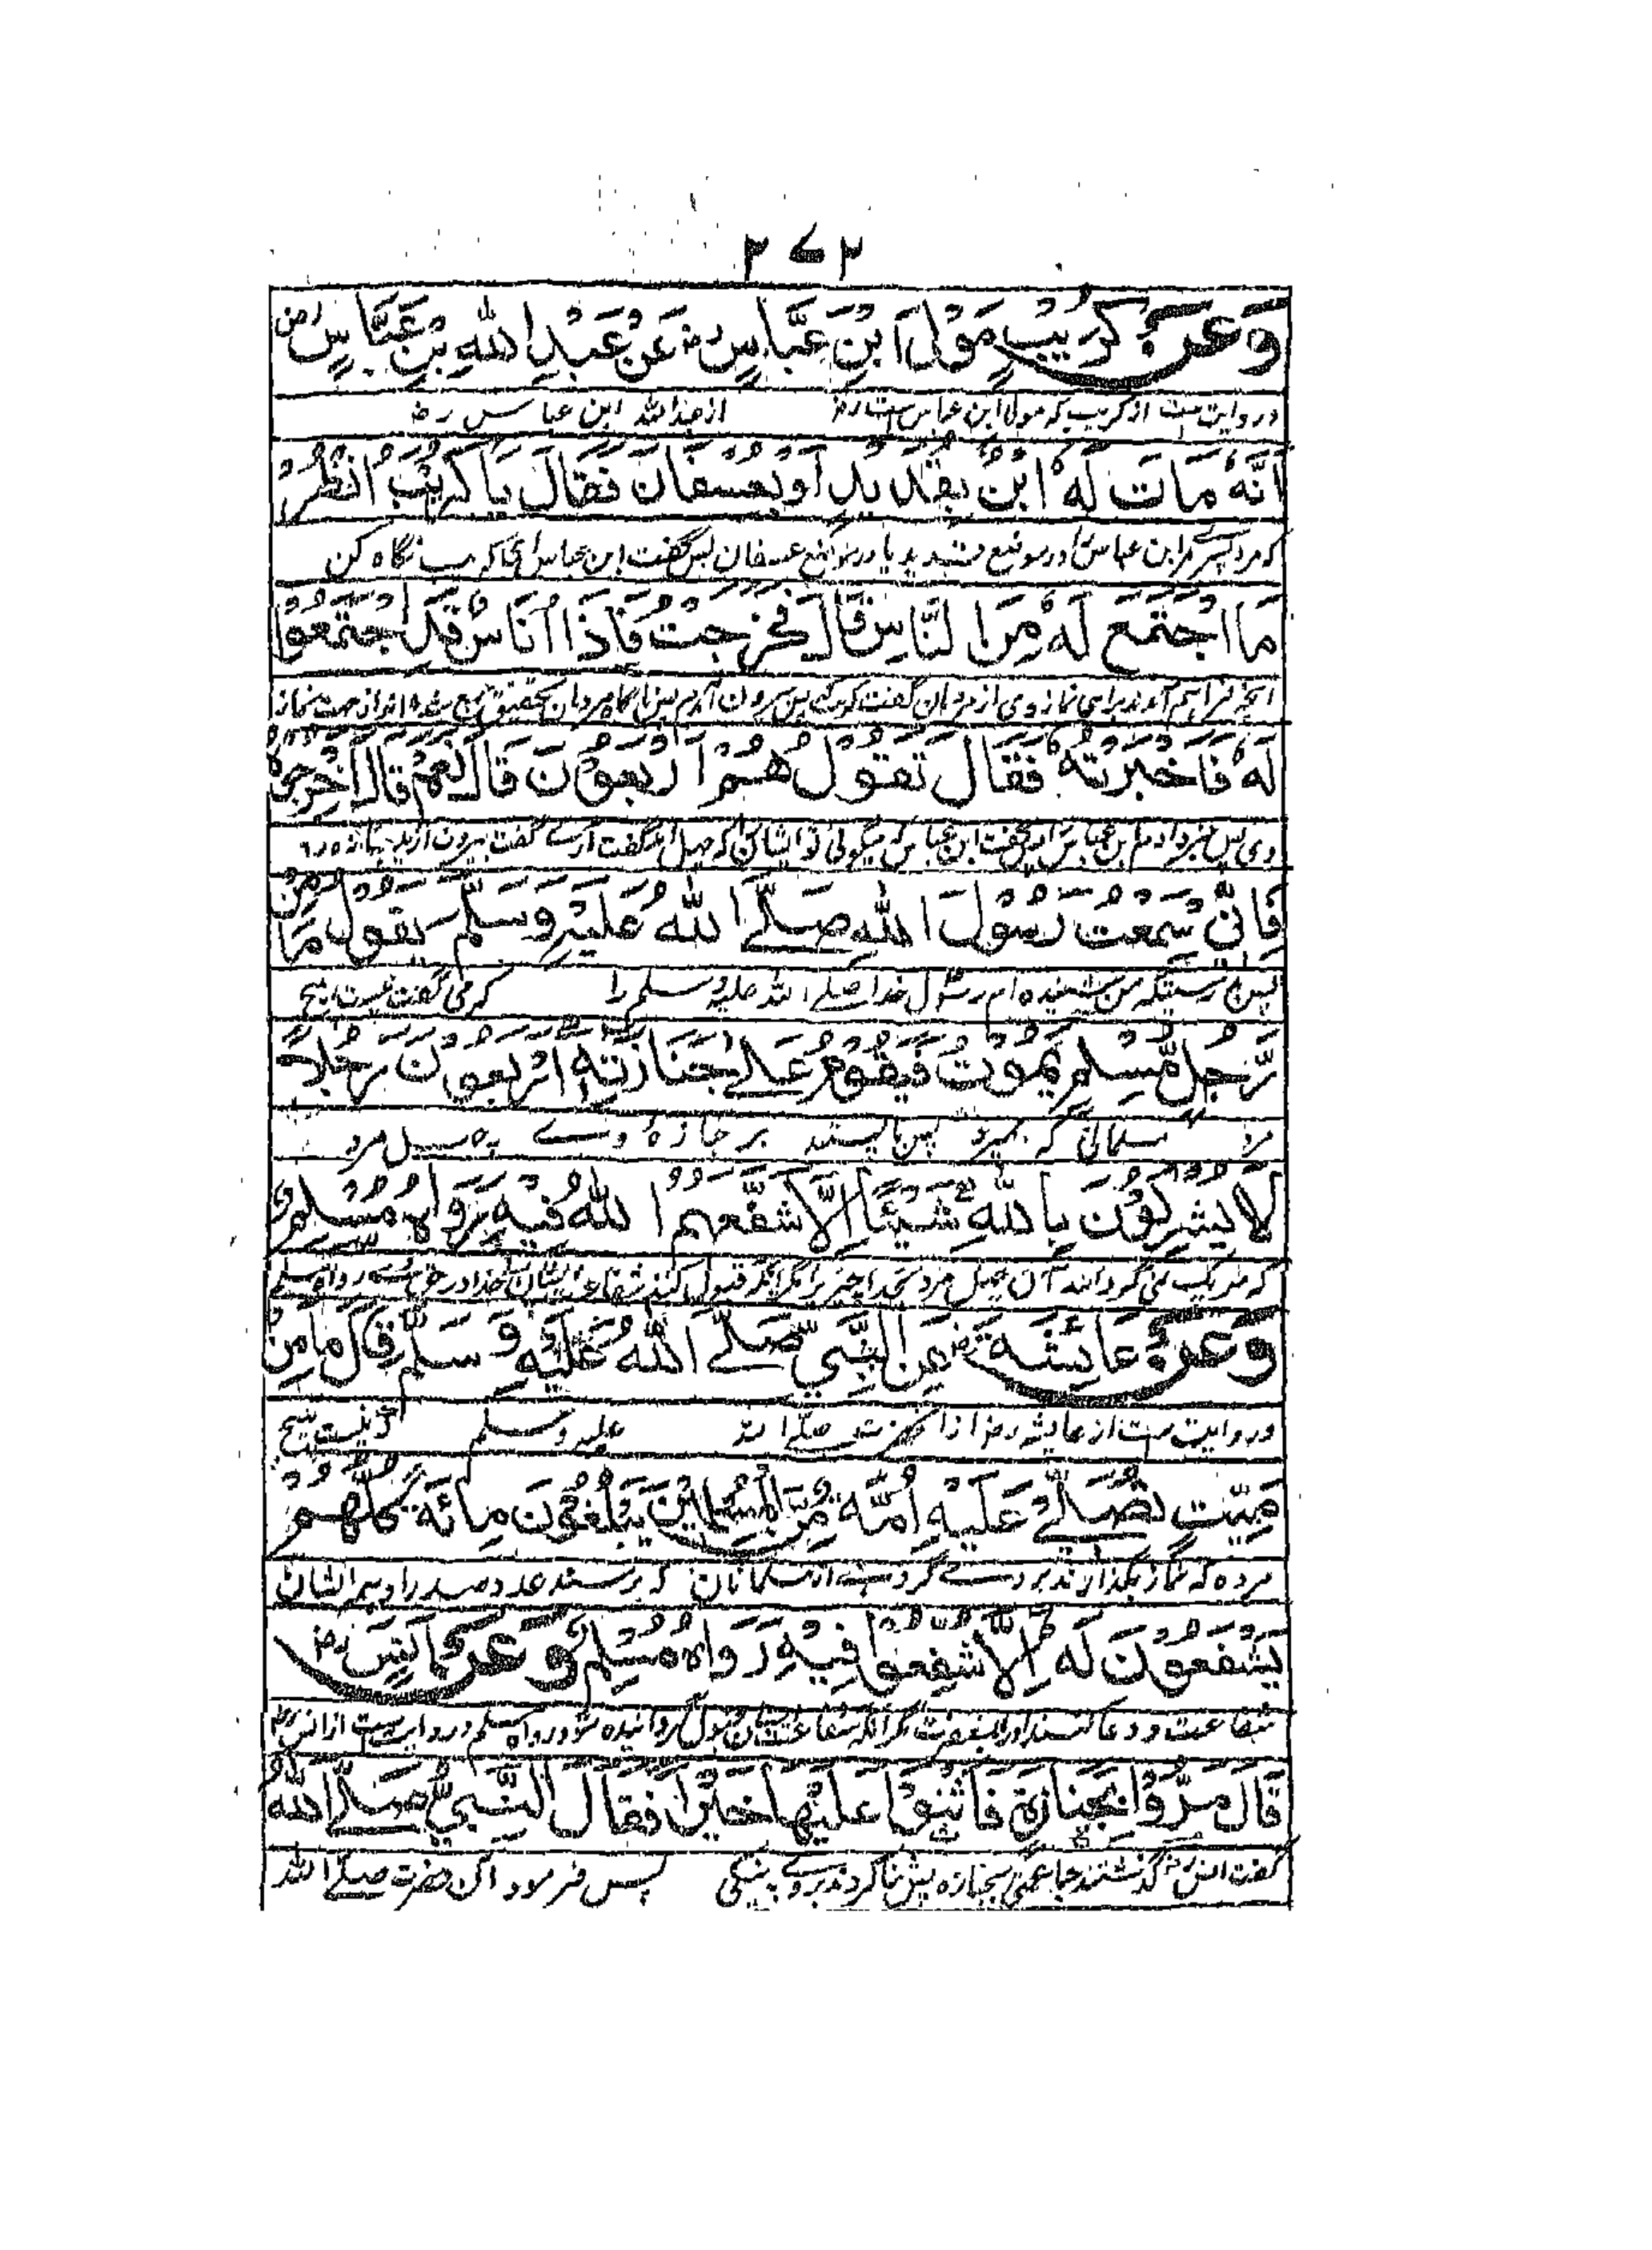 ۳۷۲
وَعَنْ كُرَيْبٍ مَوْلَى ابْنِ عَبَّاسٍ رض عَنْ عَبْدِ اللهِ بْنِ عَبَّاسٍ رض
و روایت است از کریب که مولی ابن عباس است رض از عبد الله ابن عباس رض
اَنَّهٗ مَاتَ لَهٗ ابْنٌ بِقُدَيْدٍ اَوْ بِعُسْفَانَ فَقَالَ يَا كُرَيْبُ انْظُرْ
که مرد پسر مر ابن عباس را در موضع قدید یا در موضع عسفان پس گفت ابن عباس ای کریب نگاه کن
مَا اجْتَمَعَ لَهٗ مِنَ النَّاسِ قَالَ فَخَرَجْتُ فَاِذَا اُنَاسٌ قَدِ اجْتَمَعُوْا
فراهم آمدند برای نماز وی از مردمان گفت کریب پس بیرون آمدم
لَهٗ فَاَخْبَرْتُهٗ فَقَالَ تَقُوْلُ هُمْ اَرْبَعُوْنَ قَالَ نَعَمْ قَالَ اَخْرِجُوْهُ
وی پس خبر دادم ابن عباس را پس گفت ابن عباس که میگوئی تو ایشان که چهل اند گفت آرے گفت بیرون آرید
فَاِنِّيْ سَمِعْتُ رَسُوْلَ اللهِ صَلَّے اللهُ عَلَيْهِ وَسَلَّمَ يَقُوْلُ مَا مِنْ
پس بدرستیکه من شنیده ام رسول خدا صلے الله علیه وسلم را که می گفت نیست هیچ
رَّجُلٍ مُّسْلِمٍ يَّمُوْتُ فَيَقُوْمُ عَلٰے جَنَازَتِهٖ اَرْبَعُوْنَ رَجُلًا
مرد مسلمانی که بمیرد پس بایستند بر جنازه وے چهل مرد
لَا يُشْرِكُوْنَ بِاللهِ شَيْئًا اِلَّا شَفَّعَهُمُ اللهُ فِيْهِ رَوَاهُ مُسْلِمٌ
که شریک نمی گردانند آن چهل مرد بخدا چیزی را مگر آنکه قبول کند شفاعت ایشان خدا در حق وے رواه مسلم
وَعَنْ عَائِشَةَ رض عَنِ النَّبِيِّ صَلَّے اللهُ عَلَيْهِ وَسَلَّمَ قَالَ مَا مِنْ
و روایت است از عایشه رض از آنحضرت صلے الله علیه وسلم که نیست هیچ
مَيِّتٍ تُصَلِّے عَلَيْهِ اُمَّةٌ مِّنَ الْمُسْلِمِيْنَ يَبْلُغُوْنَ مِائَةً كُلُّهُمْ
مرده که نماز بگذارند بر وے گروهے از مسلمانان که برسند عدد صد را و همه ایشان
يَشْفَعُوْنَ لَهٗ اِلَّا شُفِّعُوْا فِيْهِ رَوَاهُ مُسْلِمٌ وَعَنْ اَنَسٍ رض
شفاعت و دعا کنند او را مگر آنکه شفاعت ایشان قبول گردانیده شود رواه مسلم و روایت است از انس رض
قَالَ مَرُّوْا بِجَنَازَةٍ فَاَثْنَوْا عَلَيْهَا خَيْرًا فَقَالَ النَّبِيُّ صَلَّے اللهُ
گفت انس رض گذشتند جماعتی بجنازه پس ثنا کردند بروے به نیکی پس فرمود آن حضرت صلے الله